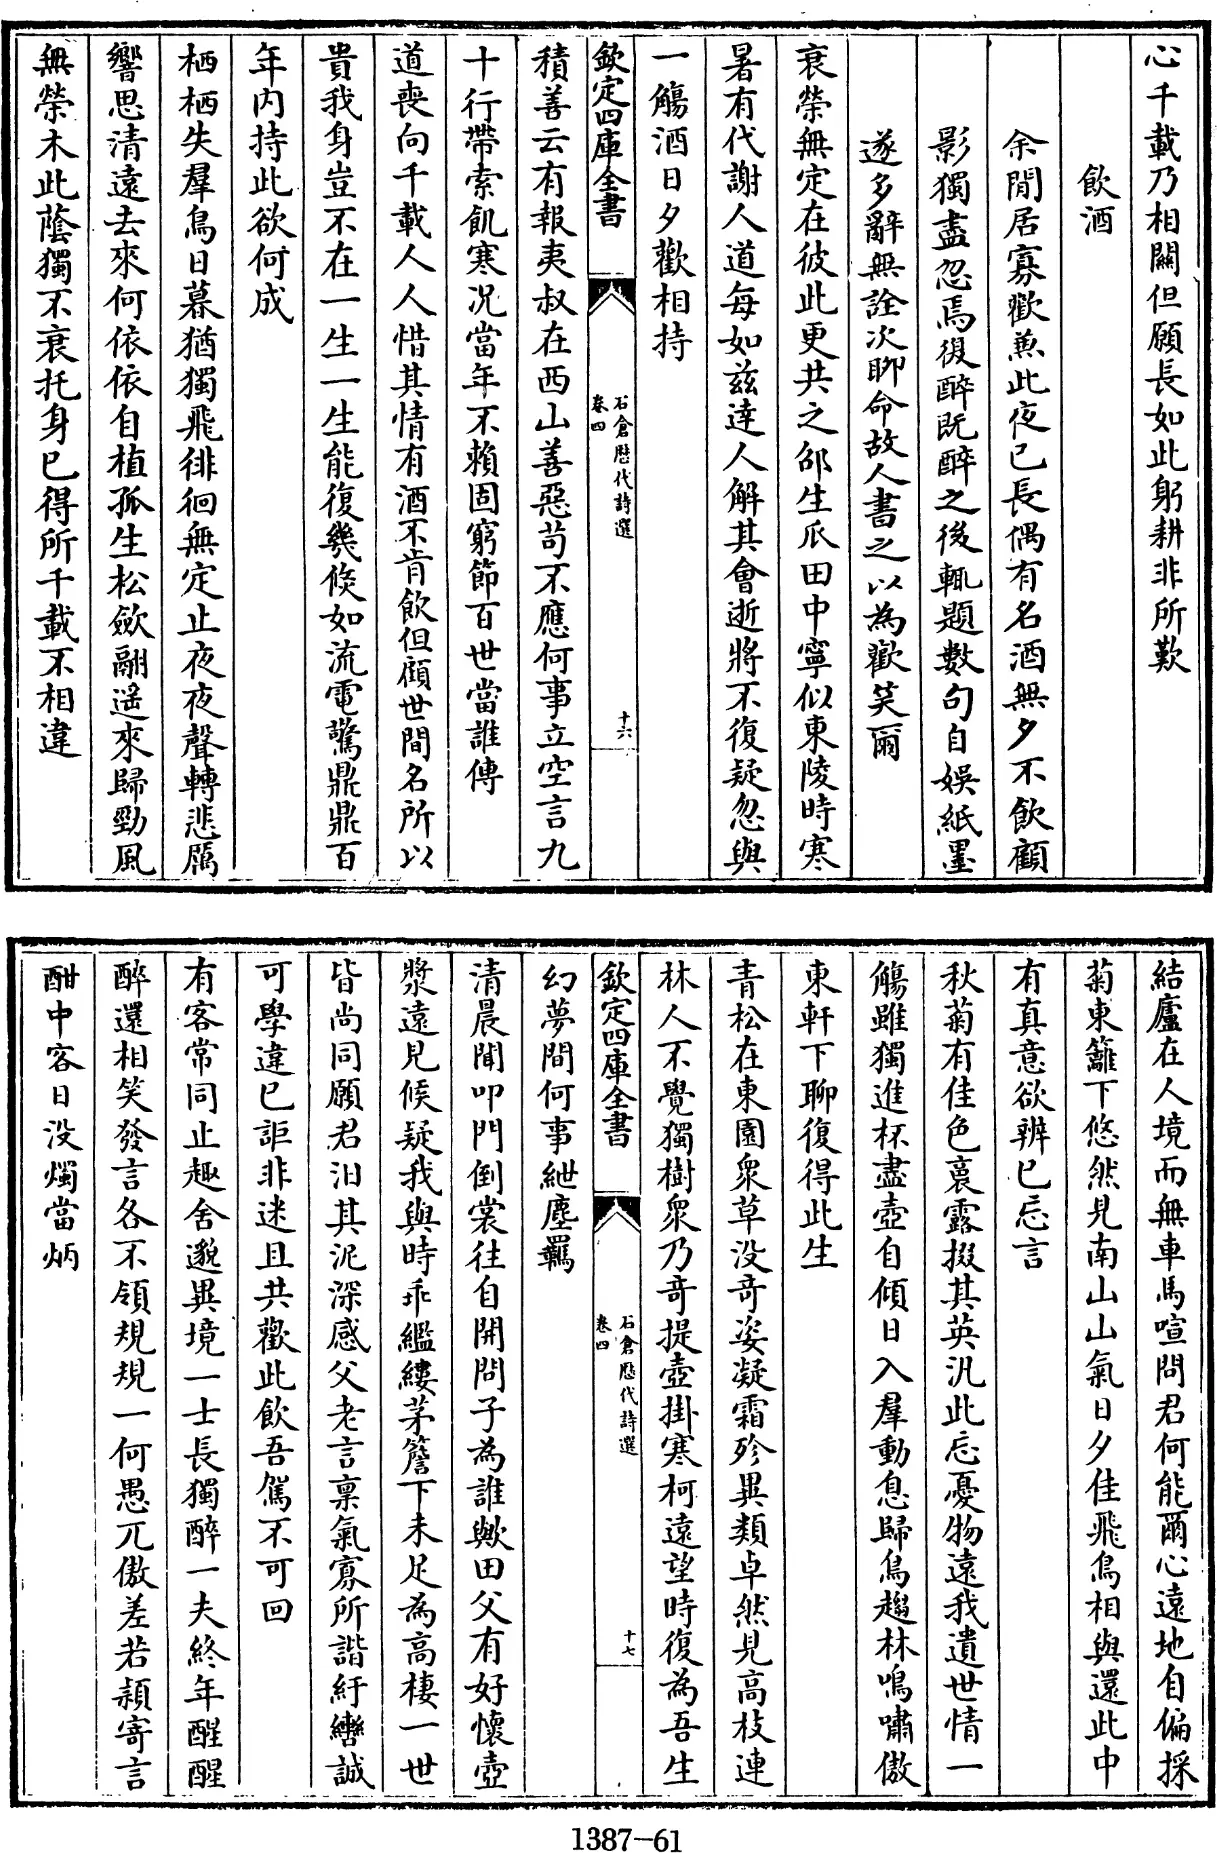 心千載乃相關但願長如此躬耕非所歎
飲酒
余閒居寡歡兼此夜已長偶有名酒無夕不飲顧
影獨盡忽焉復醉既醉之後輒題數句自娛紙墨
遂多辭無詮次聊命故人書之以為歡笑爾
衰榮無定在彼此更共之邵生瓜田中寧似東陵時寒
暑有代謝人道每如兹達人解其會逝將不復疑忽與
一觴酒日夕歡相持
欽定四庫全書
石倉歷代詩選
卷四
十六
積善云有報夷叔在西山善惡苟不應何事立空言九
十行帶索飢寒况當年不賴固窮節百世當誰傳
道喪向千載人人惜其情有酒不肯飲但顧世間名所以
貴我身豈不在一生一生能復幾倐如流電驚鼎鼎百
年内持此欲何成
栖栖失羣鳥日暮猶獨飛徘徊無定止夜夜聲轉悲厲
響思清遠去來何依依自植孤生松斂翮遥來歸勁風
無榮木此蔭獨不衰托身已得所千載不相違
結廬在人境而無車馬喧問君何能爾心遠地自偏採
菊東籬下悠然見南山山氣日夕佳飛鳥相與還此中
有真意欲辨已忘言
秋菊有佳色裛露掇其英汎此忘憂物遠我遺世情一
觴雖獨進杯盡壺自傾日入羣動息歸鳥趨林鳴嘯傲
東軒下聊復得此生
青松在東園衆草没奇姿凝霜殄異類卓然見高枝連
林人不覺獨樹衆乃奇提壺掛寒柯遠望時復為吾生
欽定四庫全書
石倉歷代詩選
卷四
十七
幻夢間何事紲塵羈
清晨聞叩門倒裳往自開問子為誰歟田父有好懷壺
漿遠見候疑我與時乖繿縷茅簷下未足為高棲一世
皆尚同願君汩其泥深感父老言稟氣寡所諧紆轡誠
可學違已詎非迷且共歡此飲吾駕不可回
有客常同止趣舍邈異境一士長獨醉一夫終年醒醒
醉還相笑發言各不領規規一何愚兀傲差若穎寄言
酣中客日没燭當炳
1387—61